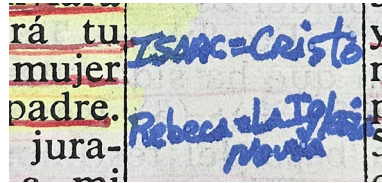 rá tu
mujer
padre.
jura-
a mi
ISAAC=Cristo
Rebeca=La Iglesia
Novia